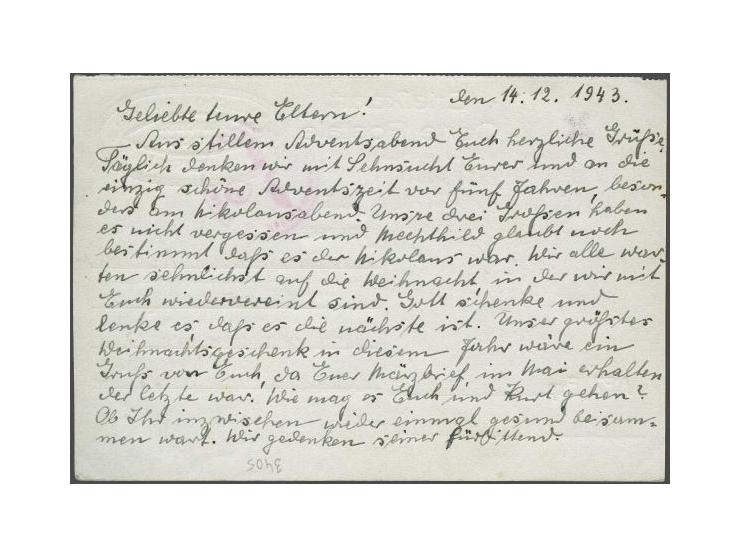 den 14. 12. 1943.
Geliebte teure Eltern!
Aus stillem Adventsabend Euch herzliche Grüße.
Täglich denken wir mit Sehnsucht Eurer und an die
einzig schöne Adventszeit vor fünf Jahren, beson-
ders am Nikolausabend. Unsre drei Großen haben
es nicht vergessen und Mechthild glaubt noch
bestimmt daß es der Nikolaus war. Wir alle war-
ten sehnlichst auf die Weihnacht in der wir mit
Euch wiedervereint sind. Gott schenke und
lenke es daß es die nächste ist. Unser größtes
Weihnachtsgeschenk in diesem Jahr wäre ein
Gruß von Euch, da Euer Märzbrief, im Mai erhalten
der letzte war. Wie mag es Euch und Kurt gehen?
Ob Ihr inzwischen wieder einmal gesund beisam=
men wart. Wir gedenken seiner fürbittend.
3405